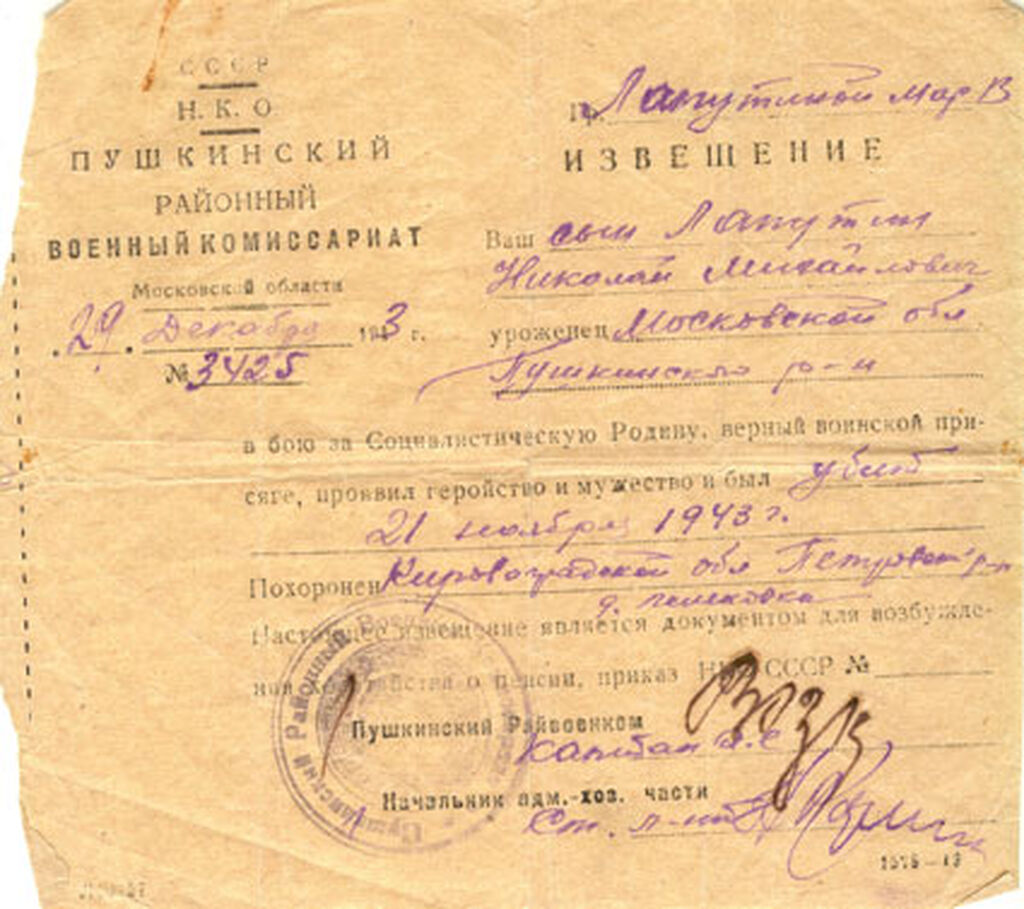 СССР
Н.К.О
ПУШКИНСКИЙ
РАЙОННЫЙ
ВОЕННЫЙ КОМИССАРИАТ
Московской области
29. Декабря 1943 г.
№ 3425
Гр. Лапутиной Мар В
ИЗВЕЩЕНИЕ
Ваш сын Лапутин
Николай Михайлович
уроженец Московской обл
Пушкинского р-н
в бою за Социалистическую Родину, верный воинской при-
сяге, проявил геройство и мужество и был убит
21 ноября 1943 г.
Похоронен Кировоградской обл Петровск р-н
д.
Настоящее извещение является документом для возбужде-
ния ходатайства о пенсии, приказ НКО СССР №
Пушкинский Райвоенком
капитан а.с
Начальник адм.-хоз. части
Ст. л-нт
Пушкинский Районный Военный